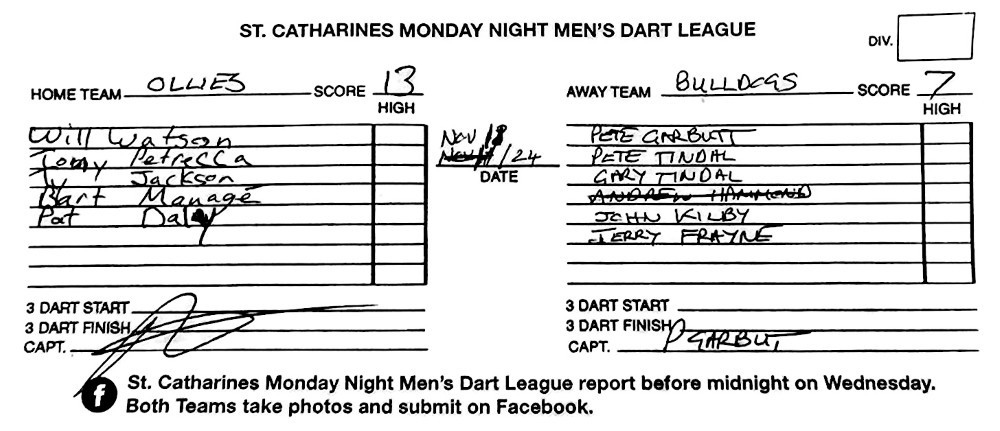 ST. CATHARINES MONDAY NIGHT MEN'S DART LEAGUE
DIV.
HOME TEAM OLLIES SCORE 13
HIGH
AWAY TEAM BULLDOGS SCORE 7
HIGH
Will Watson
Tomy Petrecca
Ty Jackson
Bart Manage
Pat Daley
Nov 18
/24
DATE
PETE GARBUTT
PETE TINDAL
GARY TINDAL
ANDREW HAMMOND
JOHN KILBY
JERRY FRAYNE
3 DART START
3 DART FINISH
CAPT.
3 DART START
3 DART FINISH
CAPT. P GARBUTT
f St. Catharines Monday Night Men's Dart League report before midnight on Wednesday.
Both Teams take photos and submit on Facebook.